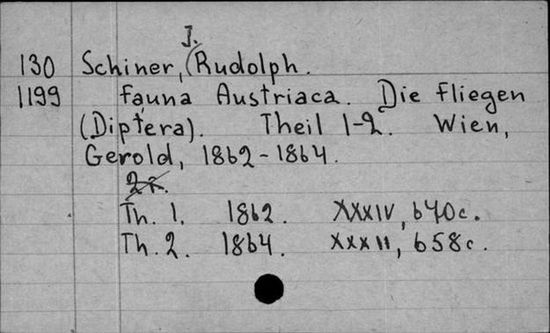 J.
130 Schiner, (Rudolph.
1199 Fauna Austriaca. Die Fliegen
(Diptera). Theil 1-2. Wien,
Gerold, 1862-1864.
Th. 1. 1862. XXXIV, 640c.
Th. 2. 1864. XXXII, 658c.